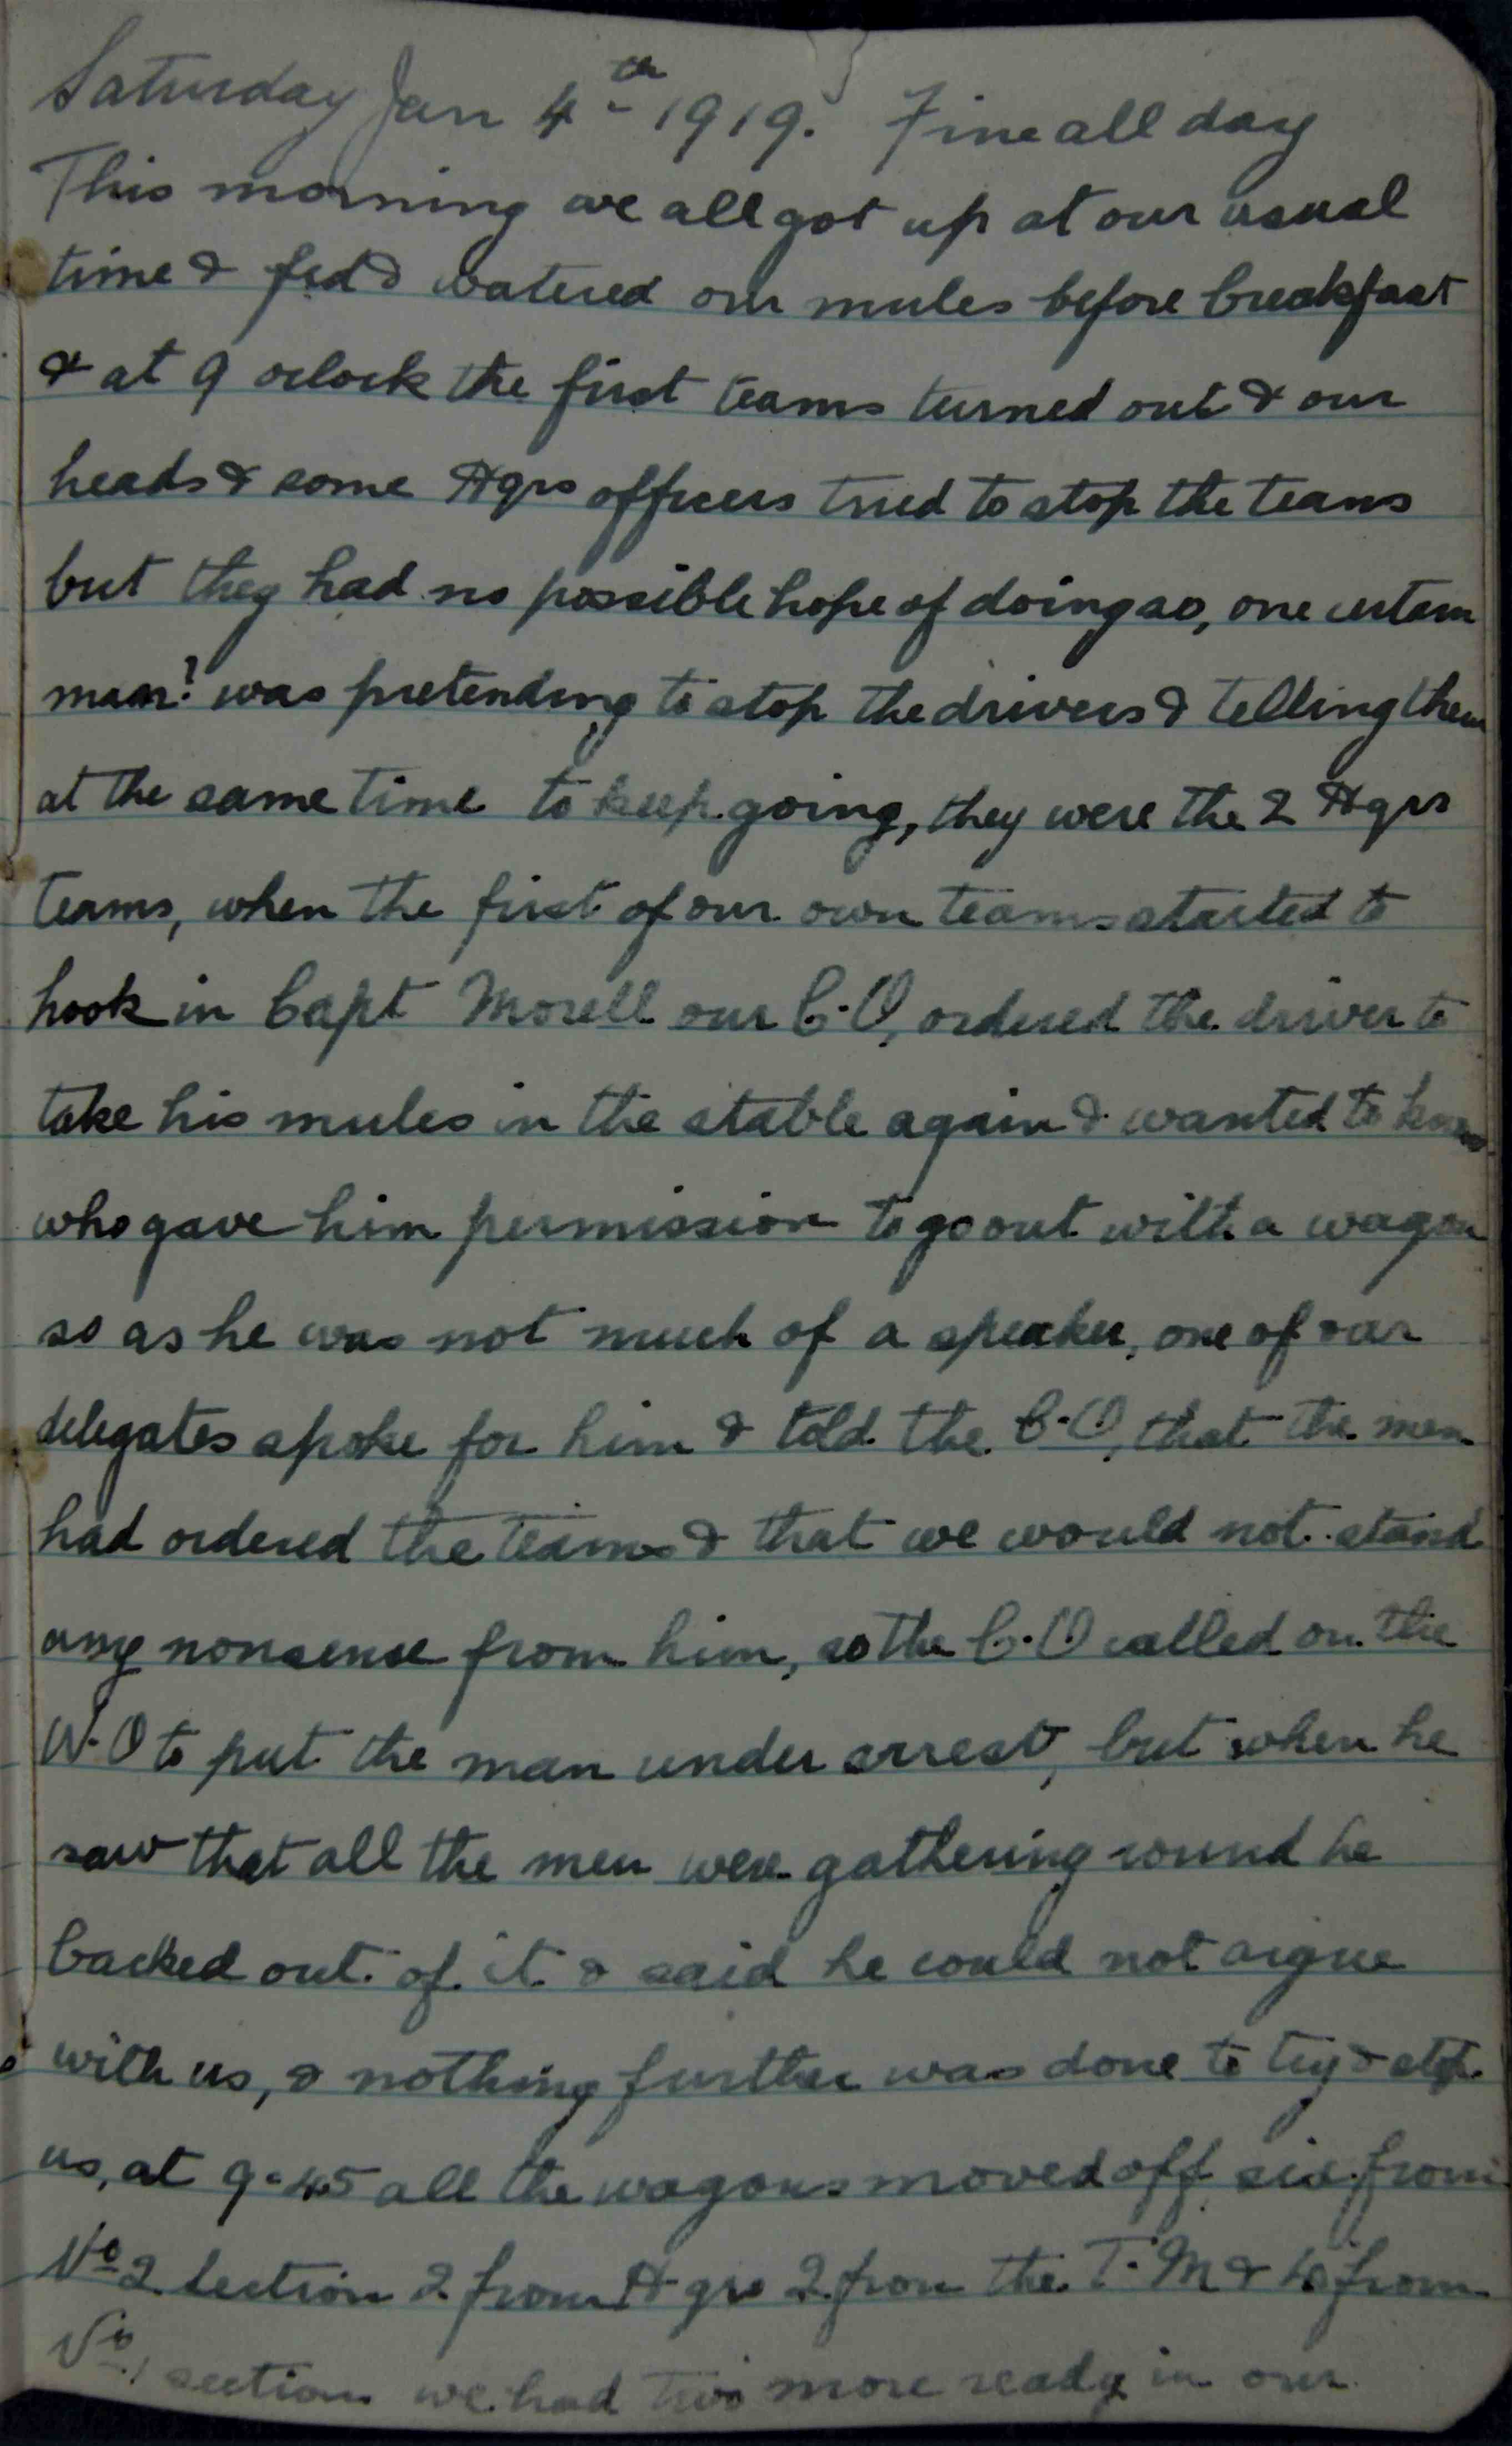 Saturday Jan 4th 1919. Fine all day
This morning we all got up at our usual
time & fed & watered our mules before breakfast
& at 9 oclock the first teams turned out & our
heads & some Hqrs officers tried to stop the teams
but they had no possible hope of doing so, one certain
man? was pretending to stop the drivers & telling them
at the same time to keep going, they were the 2 Hqrs
teams, when the first of our own teams started to
hook in Capt Morell our C.O, ordered the driver to
take his mules in the stable again & wanted to know
who gave him permission to go out with a wagon
so as he was not much of a speaker, one of our
delegates spoke for him & told the C.O, that the men
had ordered the teams & that we would not stand
any nonsense from him, so the C.O called on the
W.O to put the man under arrest, but when he
saw that all the men were gathering round he
backed out of it & said he could not argue
with us, & nothing further was done to try & stop
us, at 9-45 all the wagons moved off six from
No 2 Section 2 from Hqrs 2 from the T.M & 4 from
No 1 section we had two more ready in our